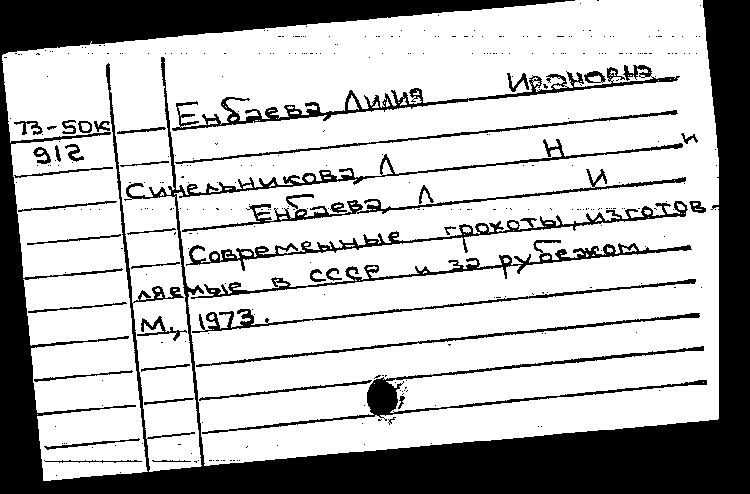 Енбаева, Лилия Ивановна
73-50к
912
Синельникова, Л Н и
Енбаева, Л И
Современные грохоты, изготов-
ляемые в СССР и за рубежом.
М., 1973.